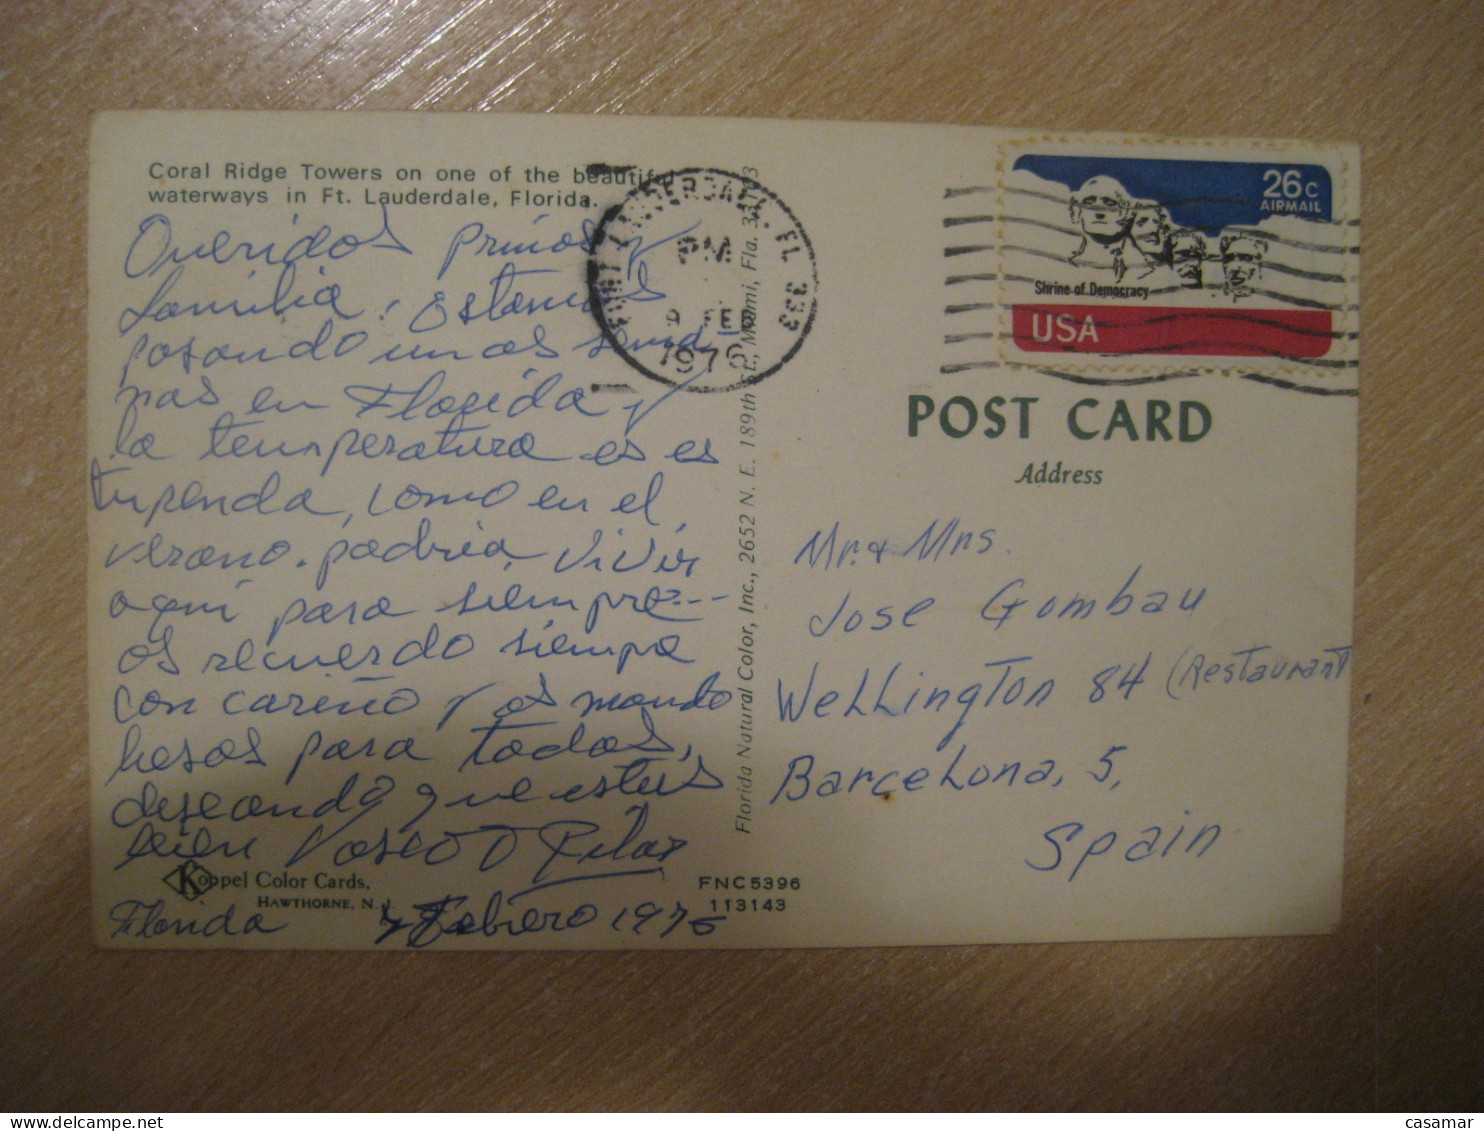 Coral Ridge Towers on one of the beautiful
waterways in Ft. Lauderdale, Florida.
Queridos primos y
familia, estamos
pasando unas sema
nas en Florida y
la temperatura es es
tupenda, como en el
verano. podria vivir
aqui para siempre---
os recuerdo siempre
con cariño y os mando
besos para todos,
deseando que esteis
bien Pilar
Koppel Color Cards,
HAWTHORNE, N. J.
Florida 7 Febrero 1976
FORT LAUDERDALE, FL 333
PM
9 FEB
1976
Florida Natural Color, Inc., 2652 N. E. 189th St., Miami, Fla.
FNC5396
113143
26c
AIRMAIL
Shrine of Democracy
USA
POST CARD
Address
Mr. & Mrs.
Jose Gombau
Wellington 84 (Restaurant
Barcelona, 5,
Spain
casamar